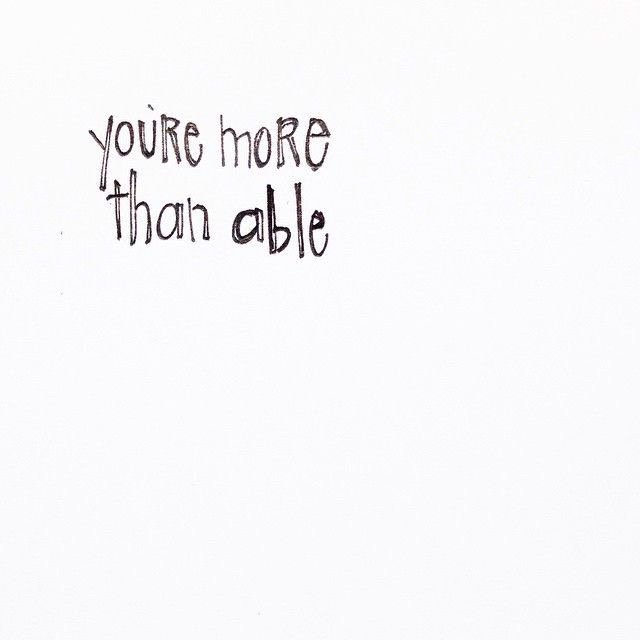 you're more
than able